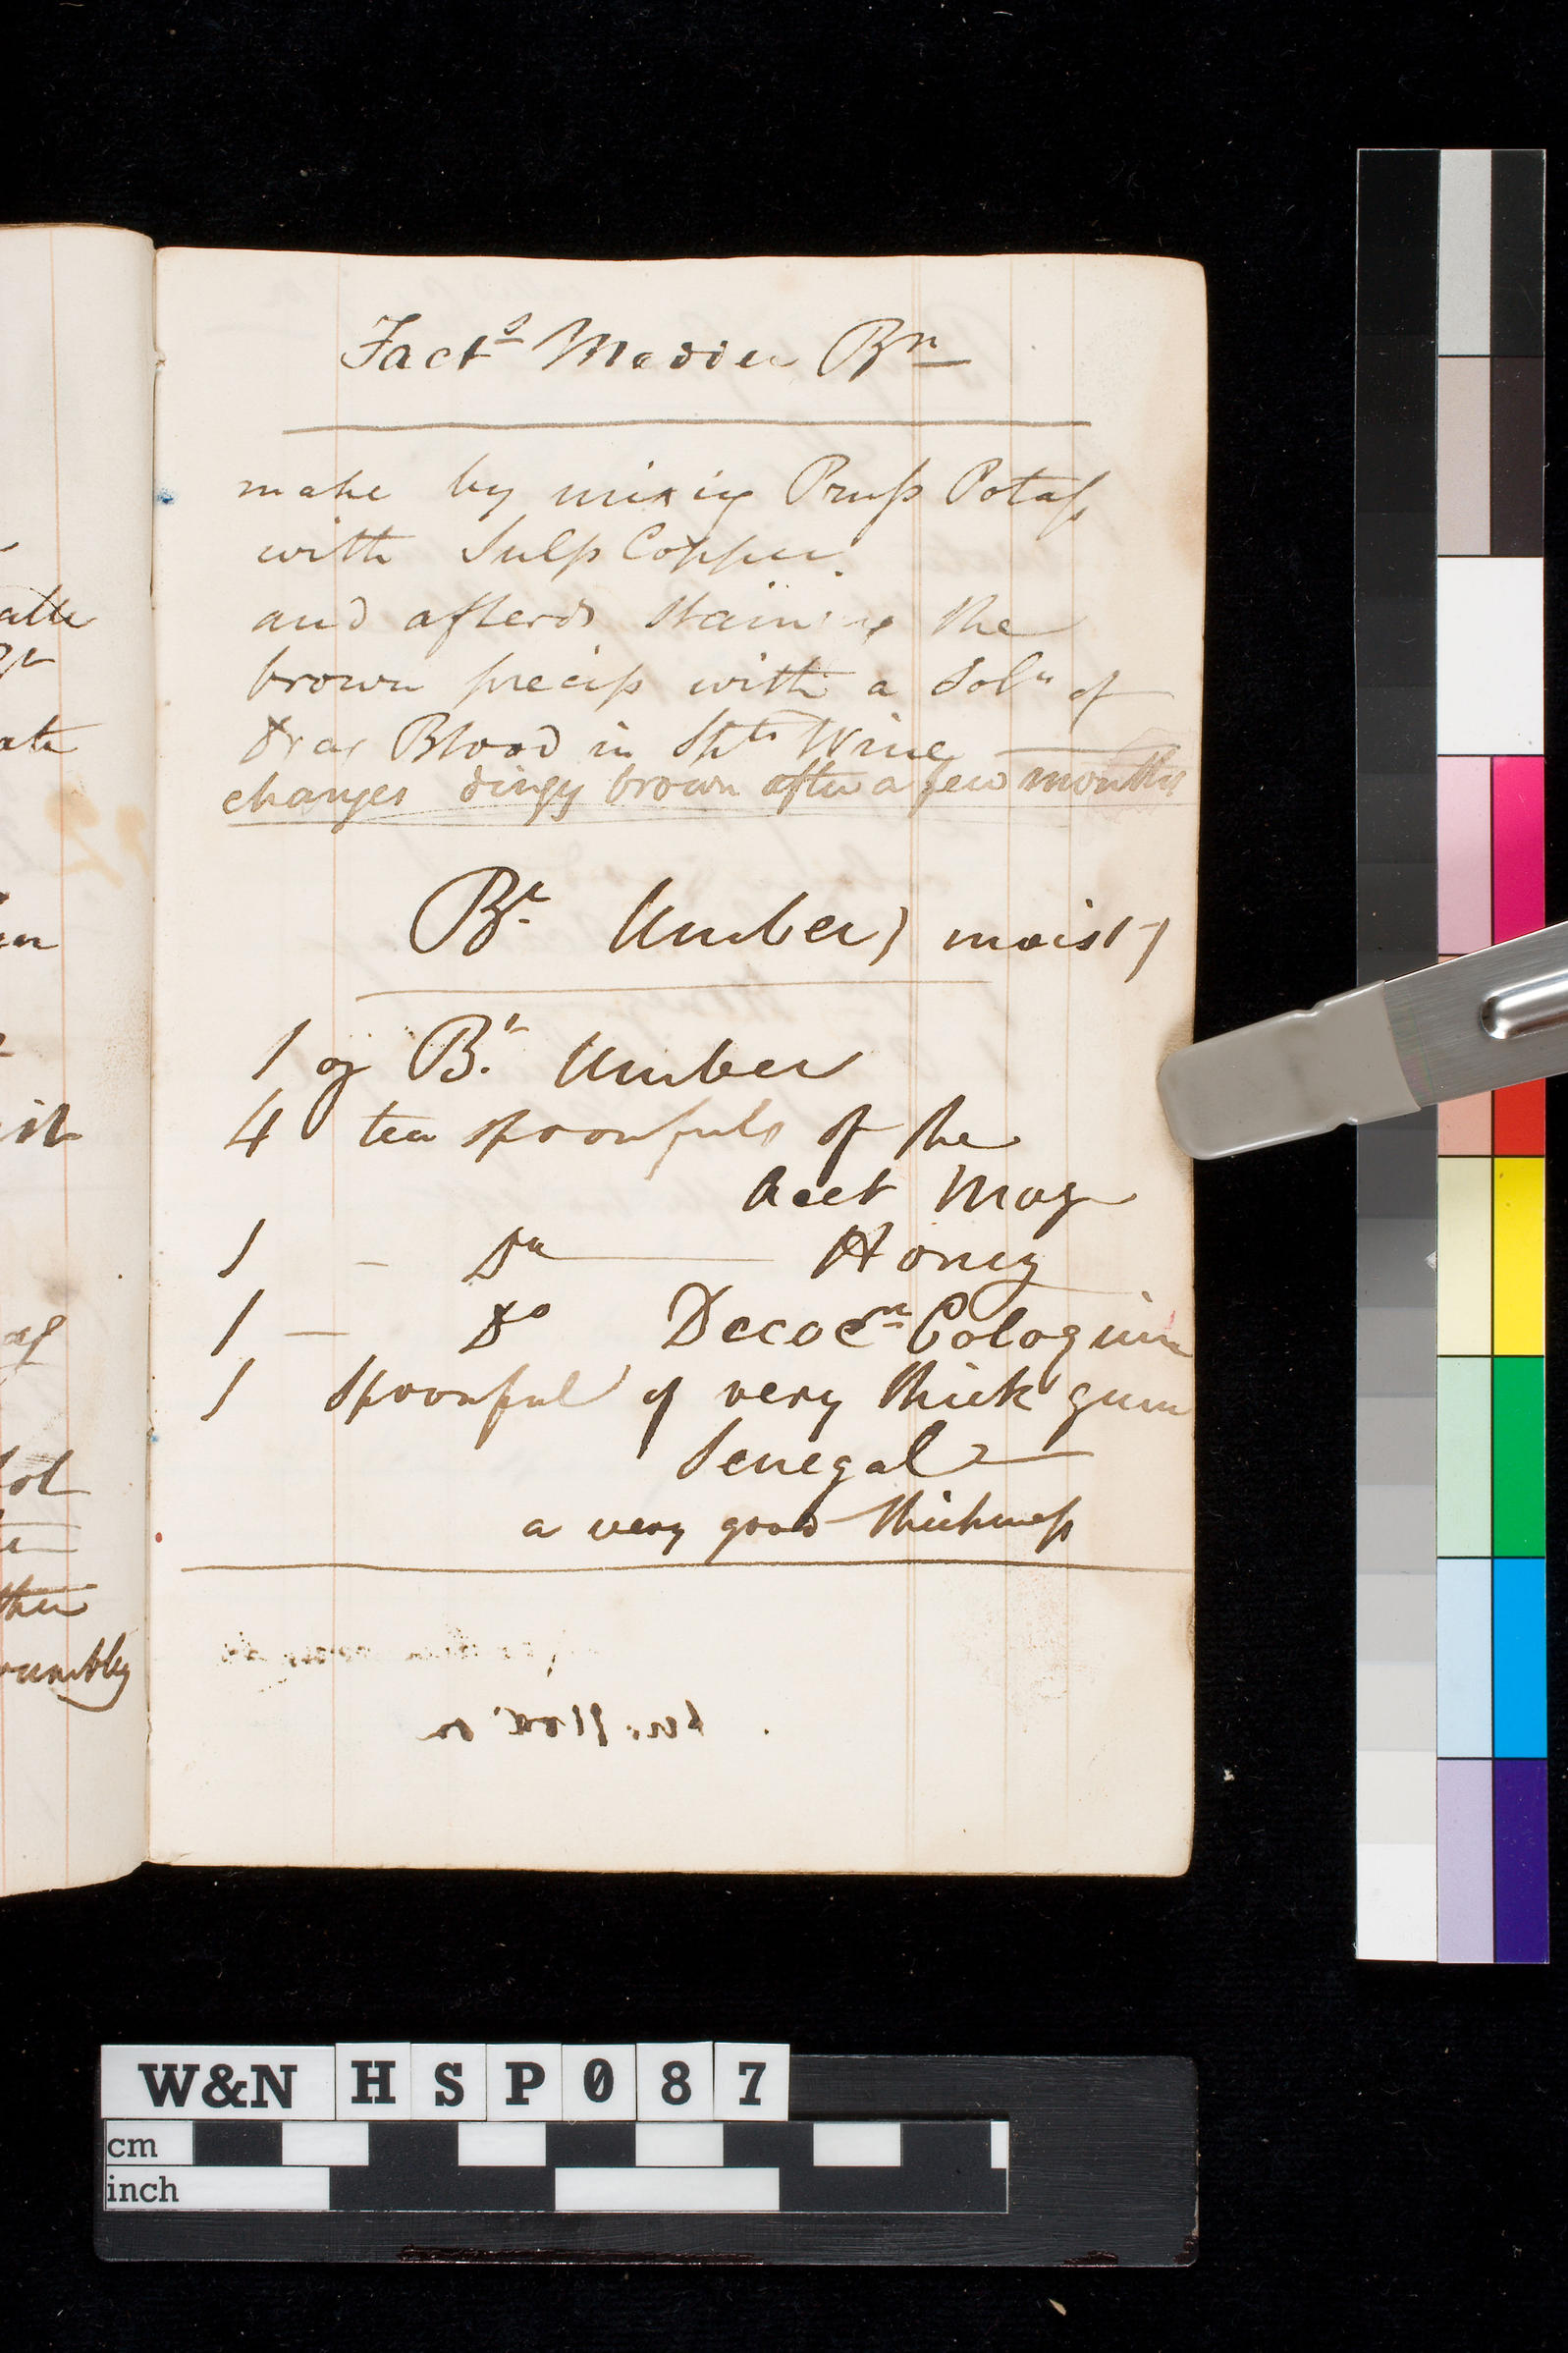 Factˢ Madder Bⁿ
make by mixing Pruss Potass
with Sulp Copper.
and afterds staining the
brown precip with a Solⁿ of
Drag Blood in Spts Wine
changes dingy brown after a few months
Bᵗ Umber, moist
1 oz Bᵗ Umber
4 tea spoonfuls of the
Acet Mag
1 - Dº Honey
1 - Dº Decocⁿ Coloquin
1 Spoonful of very thick gum
Senegal
a very good thickness
atte
ate
ist
sol
then
crumbly
W&N HSP087
cm
inch